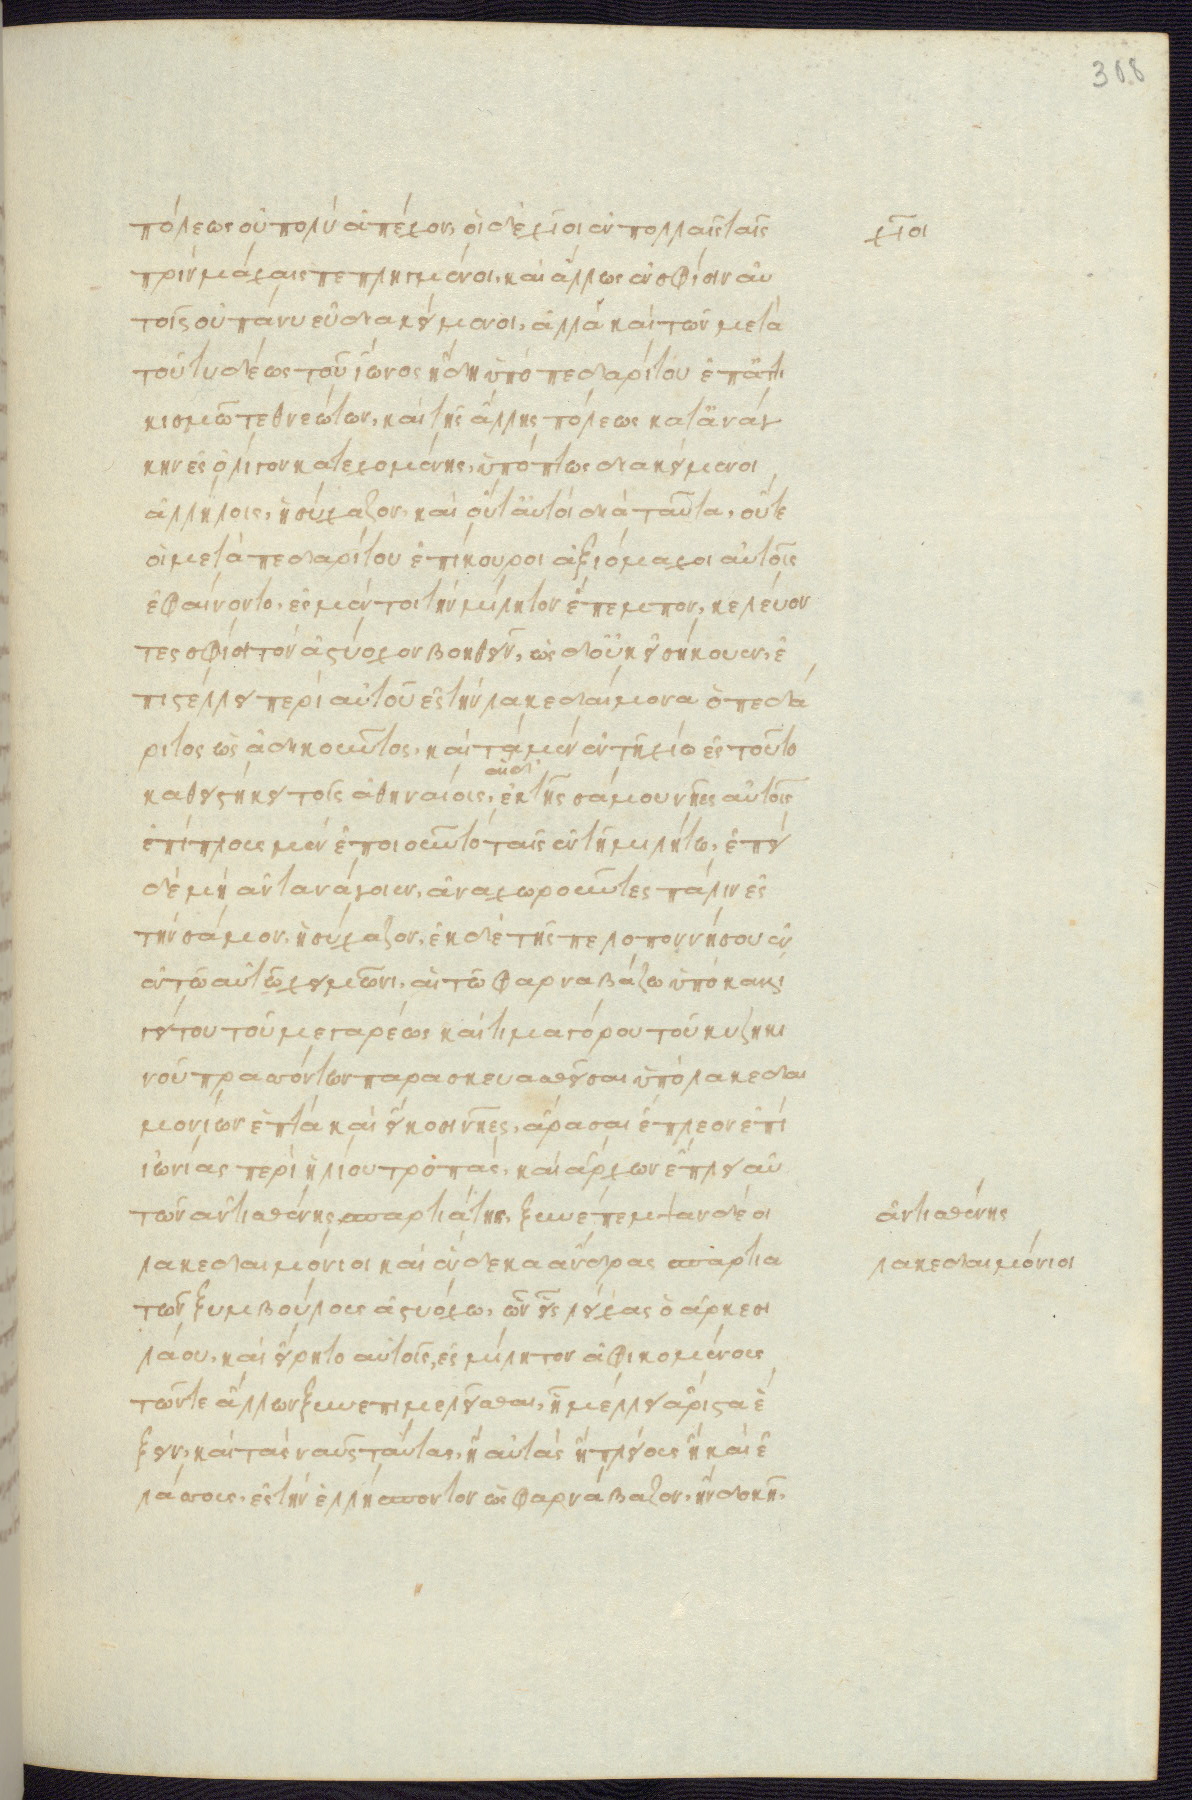 308
πόλεως οὐ πολὺ ἀπέχον, οἱ δὲ χῖοι ἐν πολλαῖς ταῖς
χῖοι
πρὶν μάχαις πεπληγμένοι, καὶ ἄλλως ἐν σφίσιν αὐ
τοῖς οὐ πάνυ εὖ διακείμενοι, ἀλλὰ καὶ τῶν μετὰ
τοῦ τυδέως τοῦ ἴωνος ἤδη ὑπὸ πεδαρίτου ἐπ' ἀττι
κισμῶ τεθνεώτων, καὶ τῆς ἄλλης πόλεως κατ' ἀνάγ
κην ἐς ὀλίγον κατεχομένης, ὑπόπτως διακείμενοι
ἀλλήλοις, ἡσύχαζον, καὶ οὔτ' αὐτοὶ διὰ ταῦτα, οὔτε
οἱ μετὰ πεδαρίτου ἐπίκουροι ἀξιόμαχοι αὐτοῖς
ἐφαίνοντο, ἐς μέντοι τὴν μίλητον ἔπεμπον, κελεύον
τες σφίσι τὸν ἀστύοχον βοηθεῖν, ὡς δ' οὐκ εἰσήκουεν, ἐ
πιστέλλει περὶ αὐτοῦ ἐς τὴν λακεδαίμονα ὁ πεδά
ριτος ὡς ἀδικοῦντος, καὶ τὰ μὲν ἐν τῆ χίω ἐς τοῦτο
καθειστήκει τοῖς ἀθηναίοις, αἱ δ' ἐκ τῆς σάμου νῆες αὐτοῖς
ἐπίπλους μὲν ἐποιοῦντο ταῖς ἐν τῆ μιλήτω, ἐπεὶ
δὲ μὴ ἀντανάγοιεν, ἀναχωροῦντες πάλιν ἐς
τὴν σάμον, ἡσύχαζον, ἐκ δὲ τῆς πελοποννήσου ἐν
ἐν τῶ αὐτῶ χειμῶνι, αἱ τῶ φαρναβάζω ὑπὸ καλλι
γείτου τοῦ μεγαρέως καὶ τιμαγόρου τοῦ κυζικη
νοῦ πρασσόντων παρασκευασθεῖσαι ὑπὸ λακεδαι
μονίων ἑπτὰ καὶ εἴκοσι νῆες, ἄρασαι ἔπλεον ἐπὶ
ἰωνίας περὶ ἡλίου τροπὰς, καὶ ἄρχων ἔπλει αὐ
τῶν ἀντισθένης σπαρτιάτης, ξυνέπεμψαν δὲ οἱ
ἀντισθένης
λακεδαιμόνιοι καὶ ἕνδεκα ἄνδρας σπαρτια
λακεδαιμόνιοι
τῶν ξυμβούλους ἀστυόχω, ὧν εἷς λείχας ὁ ἀρκεσι
λάου, καὶ εἴρητο αὐτοῖς, ἐς μίλητον ἀφικομένους
τῶν τε ἄλλων ξυνεπιμελεῖσθαι, ἧ μέλλει ἄριστα ἕ
ξειν, καὶ τὰς ναῦς ταύτας, ἢ αὐτὰς ἢ πλείους ἢ καὶ ἐ
λάσσους, ἐς τὴν ἑλλήσποντον ὡς φαρνάβαζον, ἢν δοκῆ,